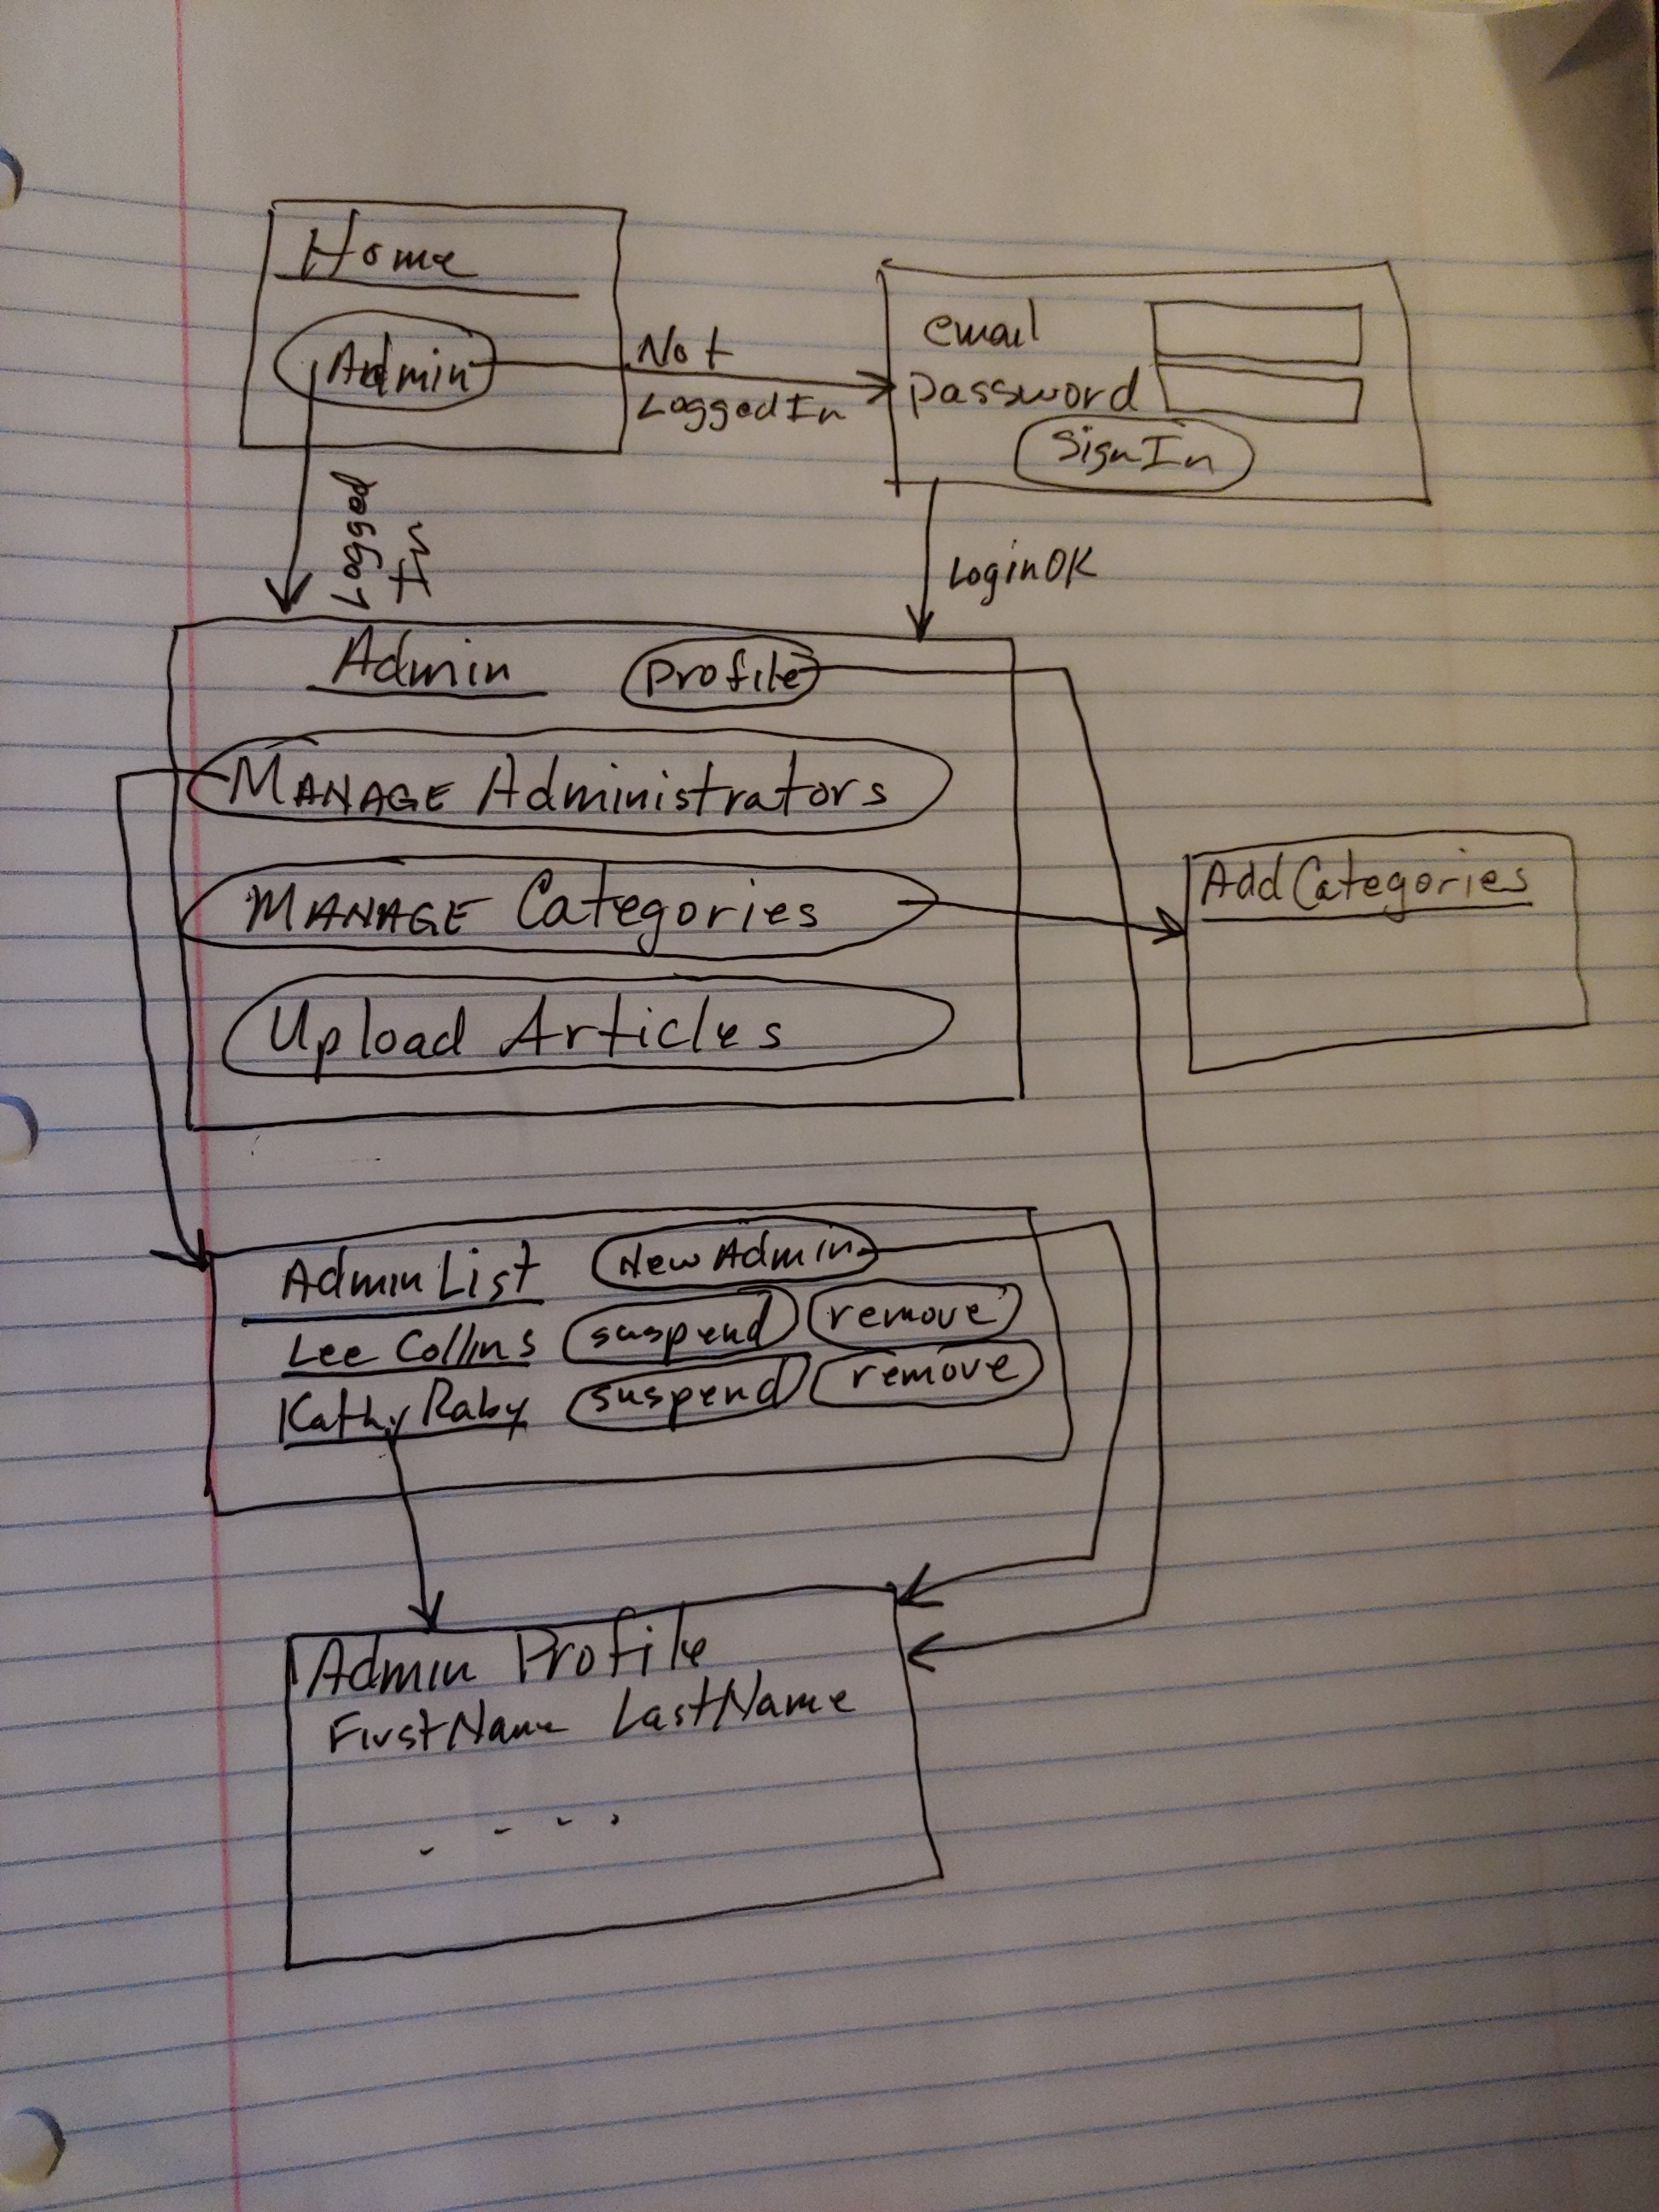 Home
Admin
Not
LoggedIn
email
password
SignIn
Logged
In
LoginOK
Admin profile
MANAGE Administrators
MANAGE Categories
Upload Articles
Add Categories
Admin List New Admin
Lee Collins suspend remove
Kathy Raby suspend remove
Admin Profile
FirstName LastName